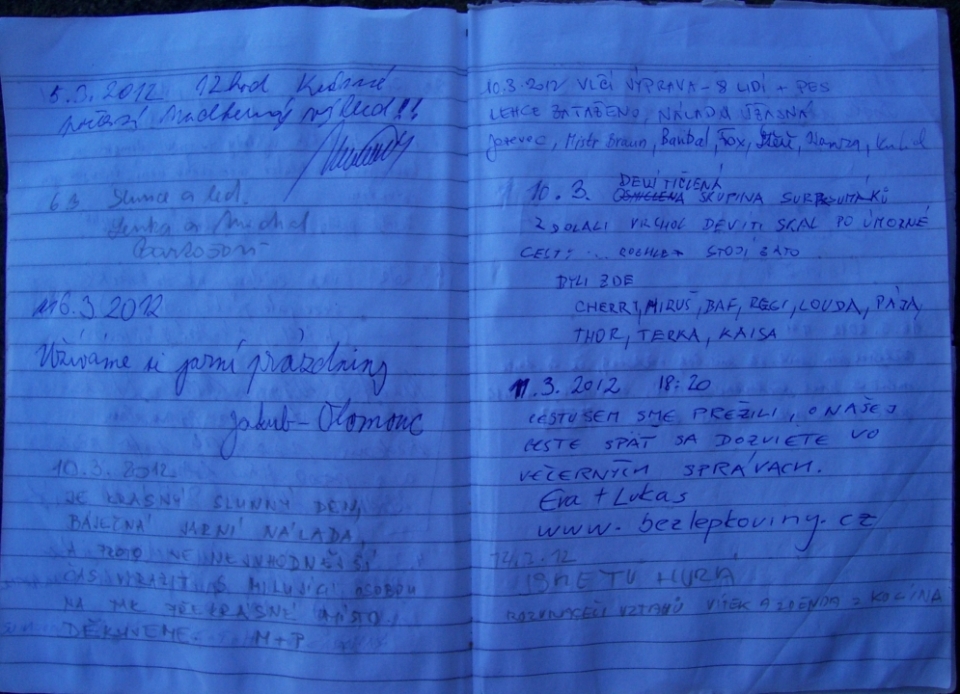 5.3.2012 12hod Krásné
počasí, led!!
6.3 Slunce a led.
Lenka a Michal
6.3 2012
Užíváme si jarní prázdniny
Jakub - Olomouc
10.3. 2012
JE KRÁSNÝ SLUNNÝ DEN,
BÁJEČNÁ JARNÍ NÁLADA,
A PROTO JE NEJVHODNĚJŠÍ
ČAS VYRAZIT S MILUJÍCÍ OSOBOU
NA MÉ KRÁSNÉ MÍSTO.
DĚKUJEME. M+P
10.3.2012 VLČÍ VÝPRAVA - 8 LIDÍ + PES
LEHCE ZATAŽENO, NÁLADA ÚŽASNÁ
Jezevec, Mistr Braun, Banbal, Fox,
10.3. DEVÍTIČLENÁ SKUPINA
ZDOLALI VRCHOL DEVÍTI SKAL PO ÚMORNÉ
CESTĚ ... ROZHLED STOJÍ ZA TO
BYLI ZDE
CHERRY, MIRUŠ, BAF, REGI, LOUDA, PÁJA,
THOR, TERKA, KAISA
11.3.2012 18:20
CESTU SEM SME PREŽILI, O NAŠEJ
CESTE SPÄŤ SA DOZVIETE VO
VEČERNÝCH SPRÁVACH.
Eva + Lukas
www.bezlepkoviny.cz
12.3.12
ISME TU HURÁ
VZTAHŮ VÍTEK A ZDENDA Z KOLÍNA